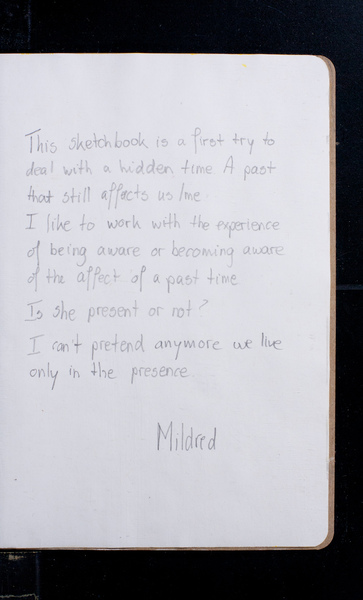 This sketchbook is a first try to
deal with a hidden time. A past
that still affects us/me.
I like to work with the experience
of being aware or becoming aware
of the affect of a past time
Is she present or not?
I can't pretend anymore we live
only in the presence.
Mildred